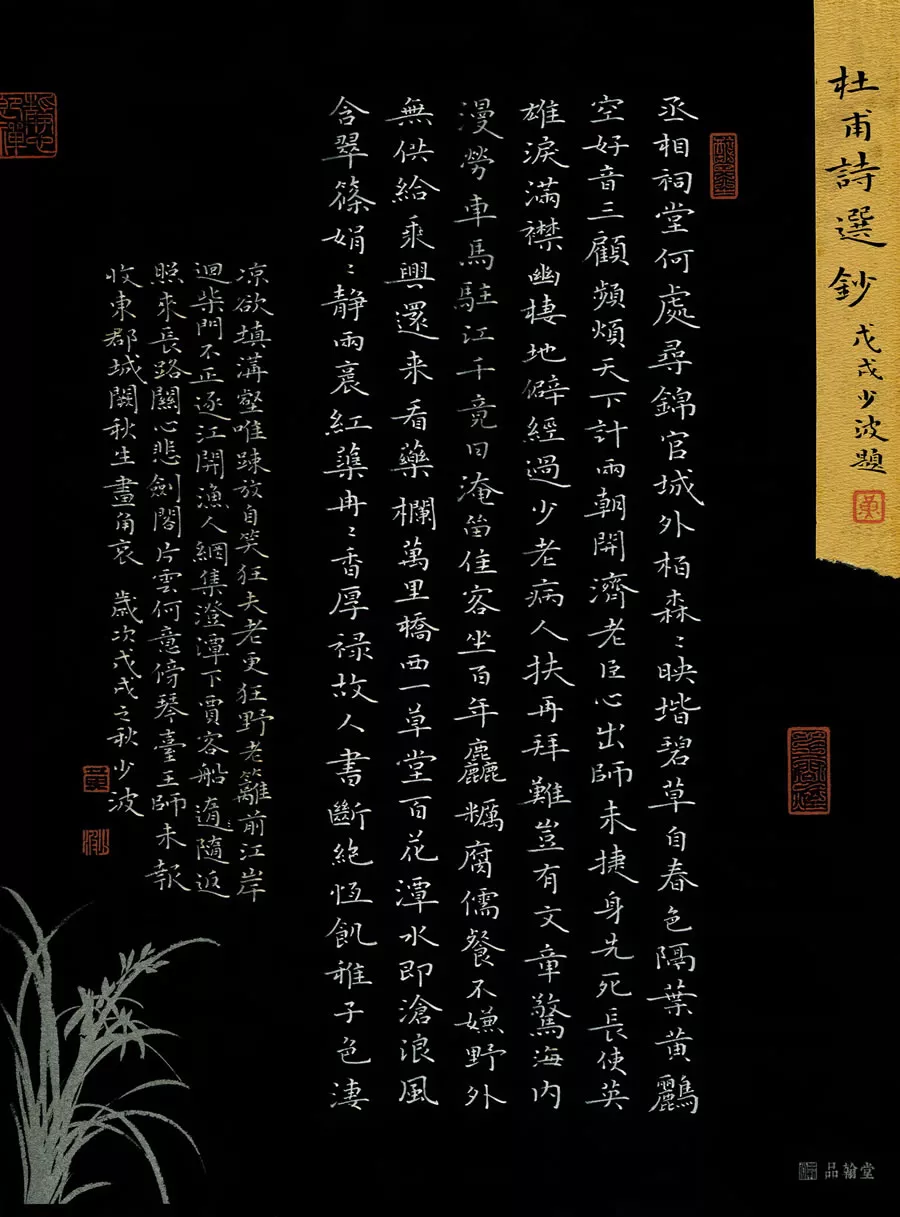 杜甫詩選鈔 戊戌少波題
丞相祠堂何處尋錦官城外柏森〻映堦碧草自春色隔葉黄鸝
空好音三顧頻煩天下計兩朝開濟老臣心出師未捷身先死長使英
雄淚滿襟幽棲地僻經過少老病人扶再拜難豈有文章驚海内
漫勞車馬駐江干竟日淹留佳客坐百年麤糲腐儒餐不嫌野外
無供給乘興還来看藥欄萬里橋西一草堂百花潭水即滄浪風
含翠篠娟〻静雨裛紅蕖冉〻香厚禄故人書斷絶恆飢稚子色淒
凉欲填溝壑唯踈放自笑狂夫老更狂野老籬前江岸
迴柴門不正逐江開漁人網集澄潭下賈客船隨返
照来長路關心悲劍閣片雲何意傍琴臺王師未報
收東郡城闕秋生畫角哀 歲次戊戌之秋少波
品翰堂